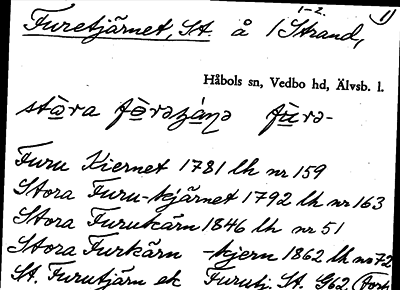 1-2. 1)
Furetjärnet, St. å 1 Strand,
Håbols sn, Vedbo hd, Älvsb. l.
Furu Kiernet 1781 lh nr 159
Stora Furu-kjärnet 1792 lh nr 163
Stora Furukärn 1846 lh nr 51
Stora Furkärn -kjern 1862 lh no 72
St. Furutjärn ek Furutj. St. G62. (Forts